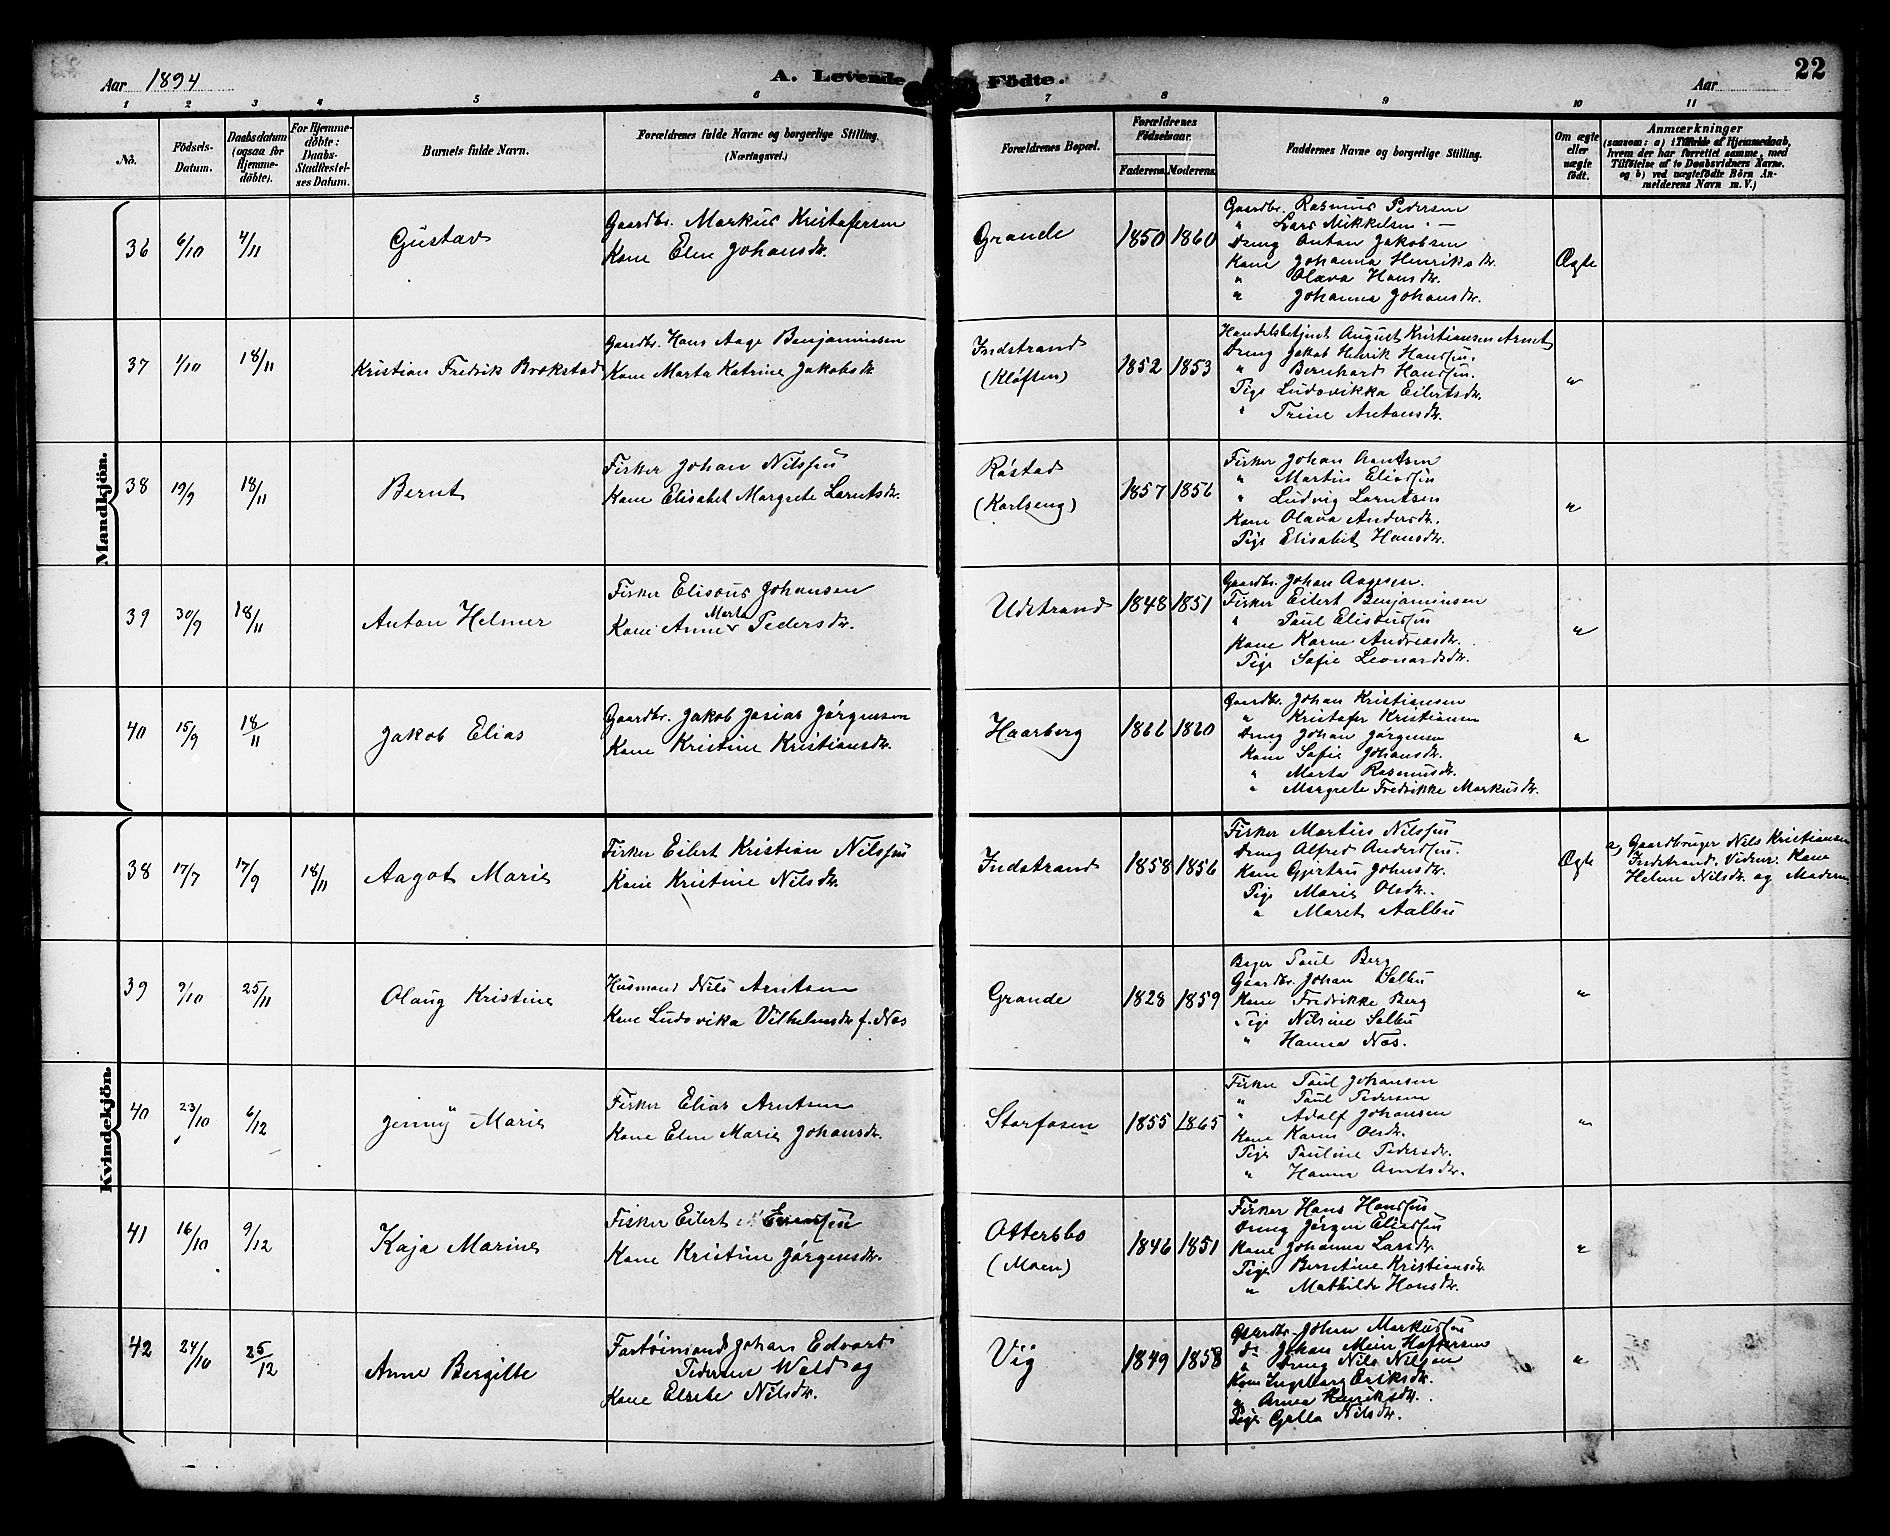 Aar 1894
A. Levende Födte.
Aar
22
1 2 3 4 5 6 7 8 9 10 11
No.
Födsels-Datum.
Daabsdatum (ogsaa for Hjemme-döbte).
For Hjemme-döbte: Daabs-Stadfæstel-ses Datum.
Barnets fulde Navn.
Forældrenes fulde Navne og borgerlige Stilling. (Næringsvei.)
Forældrenes Bopæl.
Forældrenes Födselsaar.
Faderens. Moderens.
Faddernes Navne og borgerlige Stilling.
Om ægte eller uægte födt.
Anmærkninger
(saasom: a) i Tilfælde af Hjemmedaab,
hvem der har forrettet samme, med
Tilföielse af to Daabsvidners Navne,
og b) ved uægtefödte Börn An-
melderens Navn m. V.)
Mandkjön.
36 6/10 4/11 Gustav
Gaardbr. Markus Kristafersen
Kone Elen Johansdr.
Grande 1850 1860
Gaardbr. Rasmus Pedersen
" Lars Mikkelsen
Dreng Anton Jakobsen
Kone Johanna Henriksdr.
" Olava Hansdr.
" Johanna Johansdr.
Ægte
37 1/10 18/11 Kristian Fredrik Brækstad
Gaardbr. Hans Aage Benjaminsen
Kone Marta Katrine Jakobsdr.
Indstrand
(Kløften)
1852 1853
Handelsbetjent August Kristiansen Arnet
Dreng Jakob Henrik Hanssen.
" Bernhard Hanssen.
Pige Ludovikka Eilertsdr.
" Trine Antonsdr.
"
38 19/9 18/11 Bernt
Fisker Johan Nilssen
Kone Elisabet Margrete Larntsdr.
Røstad
(Karlseng)
1857 1856
Fisker Johan Arntsen
" Martin Eliassen
" Ludvig Larntsen
Kone Olava Andersdr.
Pige Elisabet Hansdr.
"
39 30/9 18/11 Anton Helmer
Fisker Elisæus Johansen
Kone Anne Marta Pedersdr.
Udstrand 1848 1851
Gaardbr. Johan Aagesen.
Fisker Eilert Benjaminsen
" Paul Elisæussen
Kone Karen Andreasdr.
Pige Sofie Leonardsdr.
"
40 15/9 18/11 Jakob Elias
Gaardbr. Jakob Josias Jørgensen
Kone Kristine Kristiansdr.
Haarberg 1866 1860
Gaardbr. Johan Kristiansen
" Kristafer Kristiansen
Dreng Johan Jørgensen
Kone Sofie Johansdr.
" Marta Rasmusdr.
" Margrete Fredrikke Markusdr.
"
Kvindekjön.
38 17/7 17/9 18/11 Aagot Marie
Fisker Eilert Kristian Nilssen
Kone Kristine Nilsdr.
Indstrand 1858 1856
Fisker Martin Nilssen
Dreng Alfred Anderssen.
Kone Gjertru Johnsdr.
Pige Marie Olsdr.
" Maret Aalbu
Ægte
a, Gaardbruger Nils Kristiansen
Indstrand. Vidner: Kone
Helene Nilsdr. og Moderen
39 9/10 25/11 Olaug Kristine
Husmand Nils Arntsen
Kone Ludovika Vilhelmsdr. f. Næs
Grande 1828 1859
Bager Paul Berg
Gaardbr. Johan Solbu
Kone Fredrikke Berg
Pige Nilsine Solbu
" Hanna Næs.
"
40 23/10 6/12 Jenny Marie
Fisker Elias Arntsen
Kone Elen Marie Johansdr.
Storfosen 1855 1865
Fisker Paul Johansen
" Paul Pedersen
" Adolf Johansen
Kone Karen Olsdr.
Pige Pauline Pedersdr.
" Hanna Arntsdr.
"
41 16/10 9/12 Kaja Marine
Fisker Eilert
Kone Kristine Jørgensdr.
Ottersbo
(Moen)
1846 1851
Fisker Hans Hanssen
Dreng Jørgen Eliassen
Kone Johanna Larsdr.
Pige Berntine Kristiansdr.
" Mathilde Hansdr.
"
42 24/10 25/12 Anne Bergitte
Fartøimand Johan Edvart
Pedersen Wold og
Kone Elsebe Nilsdr.
Vig 1849 1858
Gaardbr. Johan Markussen
Do Johan Meier Hoffersen
Dreng Nils Nilsen
Kone Ingeborg Eriksdr.
" Anna Henriksdr.
Pige Gjella Nilsdr.
"